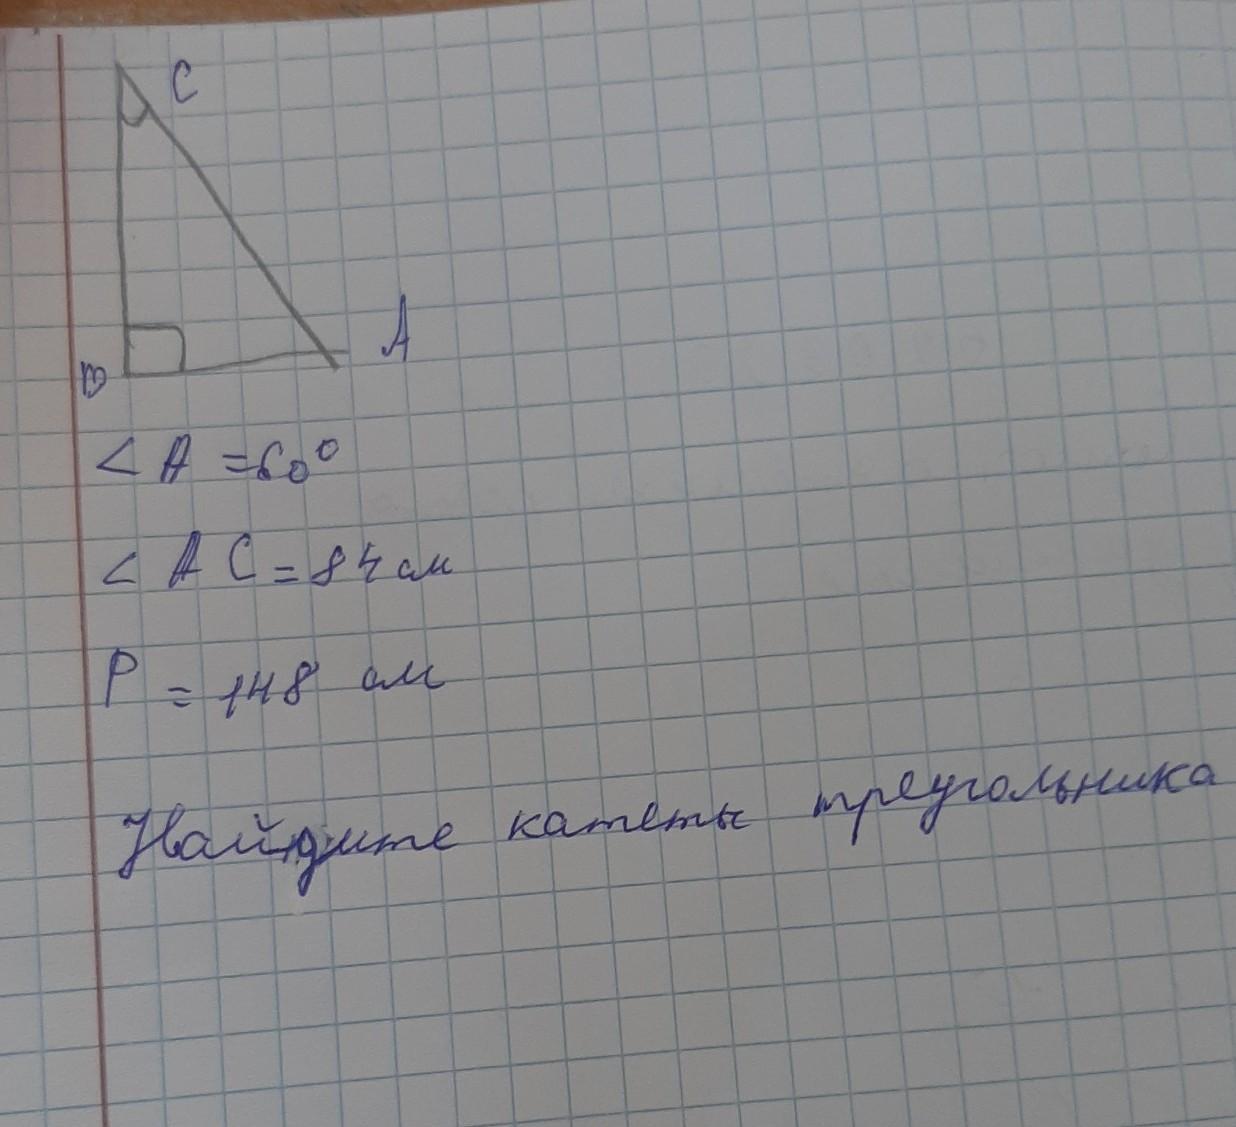 C
A
B
< A = 60°
< AC = 84 см
P = 148 см
Найдите катеты треугольника